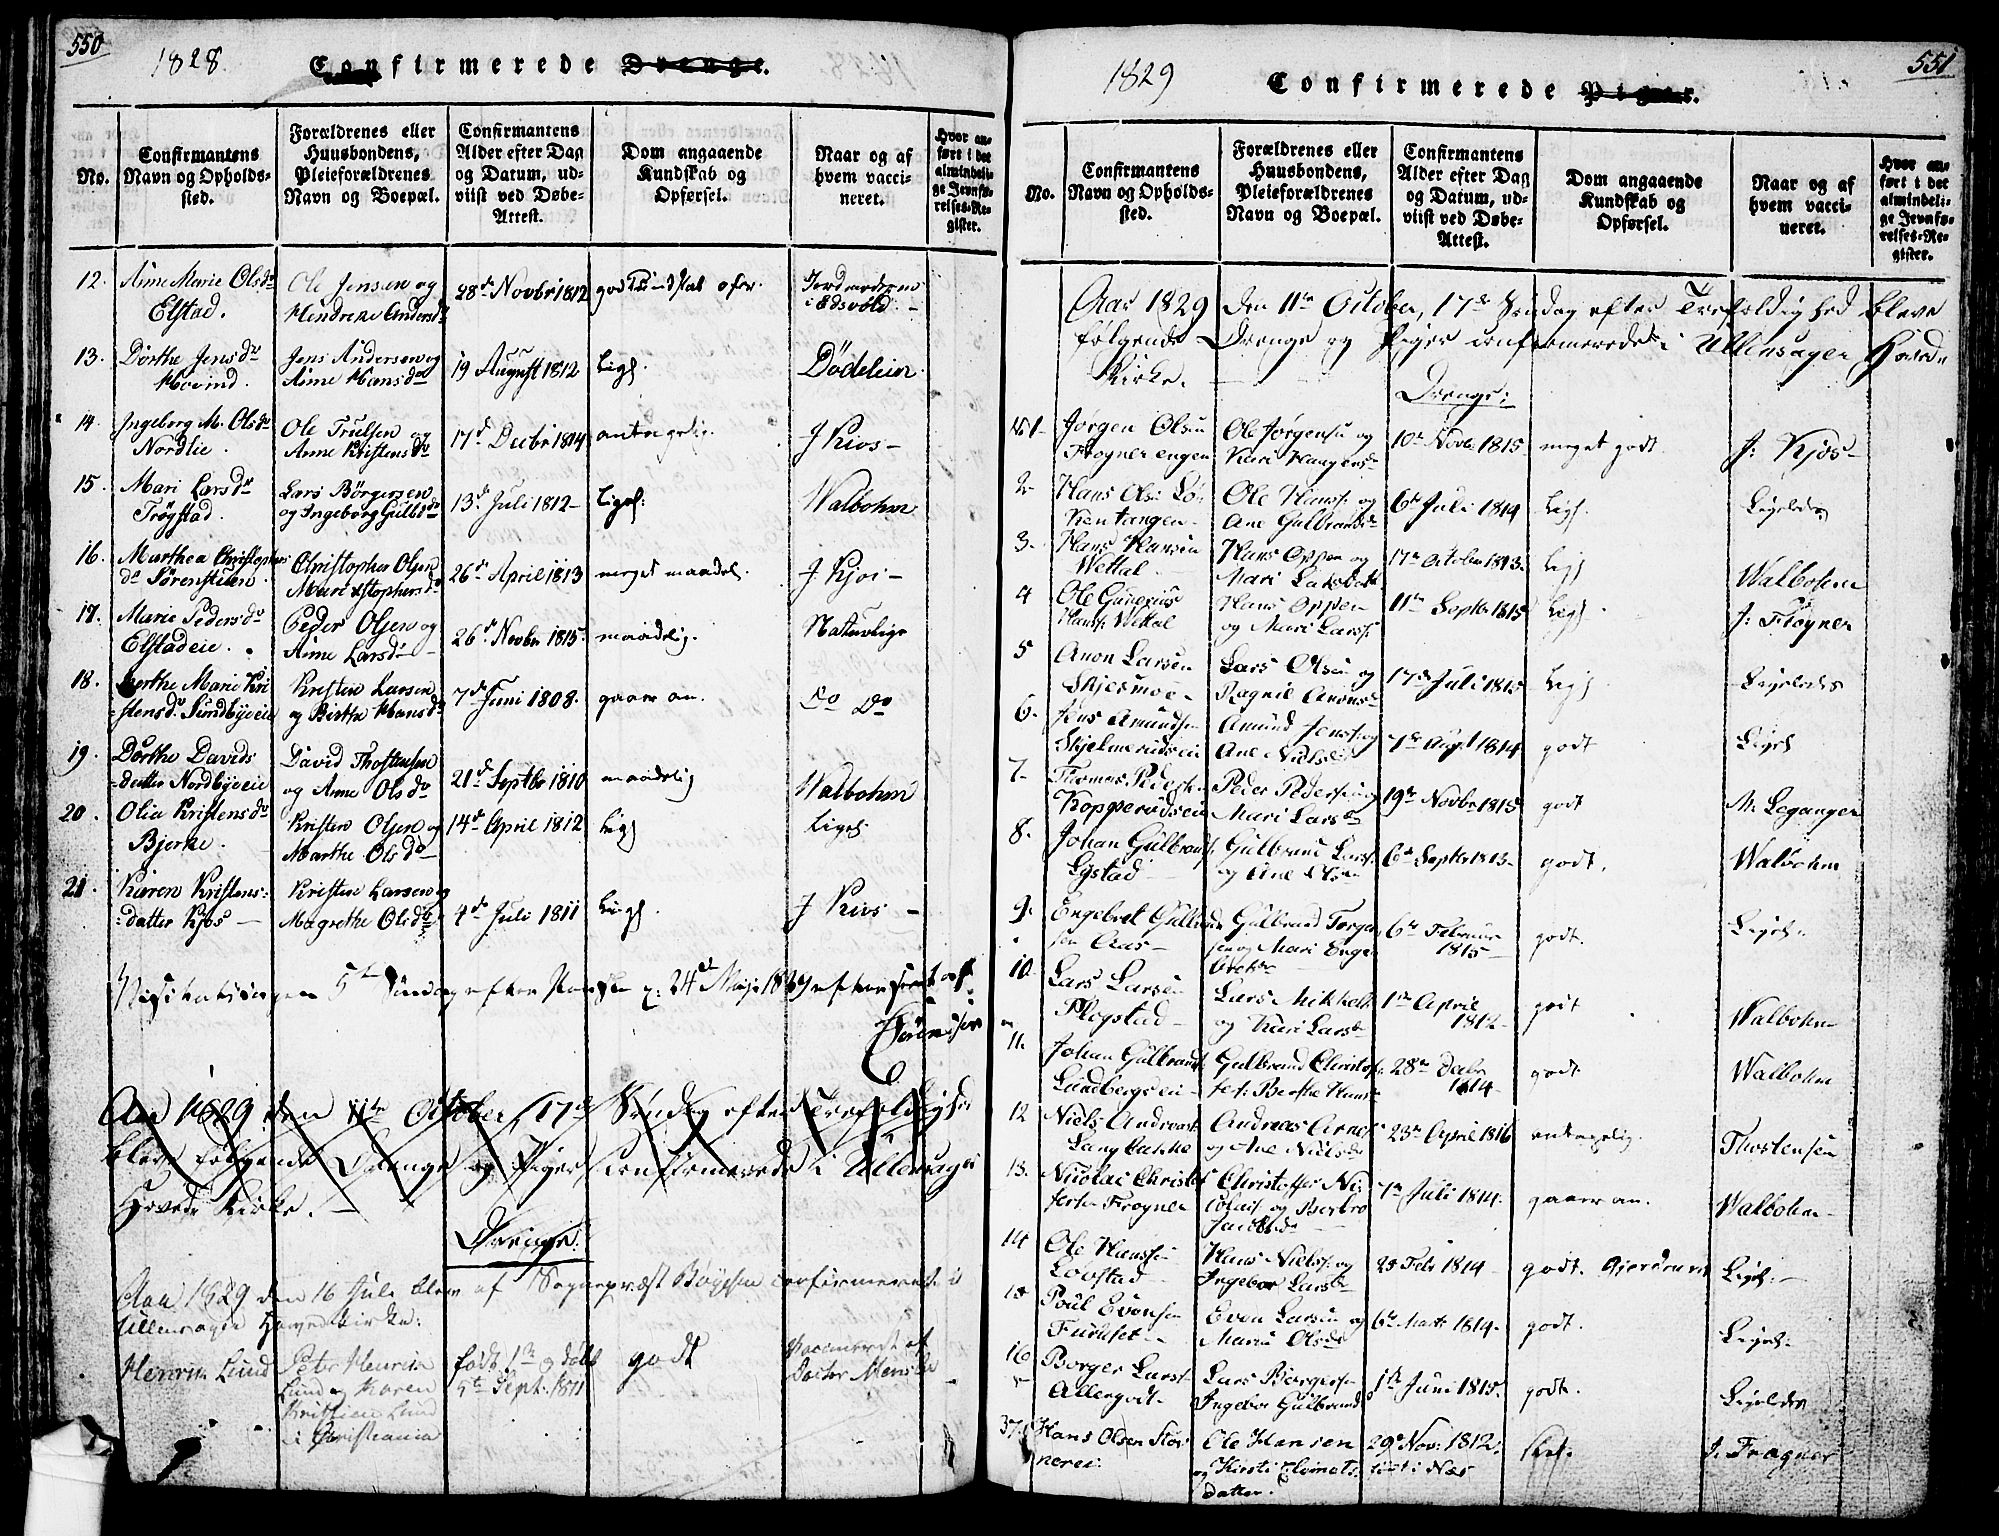 550
1828.
Confirmerede Drenge.
No.
Confirmantens
Navn og Opholds-
sted.
Forældrenes eller
Huusbondens,
Pleieforældrenes
Navn og Boepæl.
Confirmantens
Alder efter Dag
og Datum, ud-
viist ved Døbe-
Attest.
Dom angaaende
Kundskab og
Opførsel.
Naar og af
hvem vacci-
neret.
Hvor an-
ført i det
almindeli-
ge Jevnfø-
relses-Re-
gister.
12. Anne Marie Olsdr
Elstad.
Ole Jensen og
Hendrene Andersdr
28de Novbr 1812
Jordmoderen
i Edsvold.
13. Dorthe Jensdr
Hovind.
Jens Andersen og
Anne Hansdr
19 August 1812
Ligs.
Dödelein
14. Ingeborg M. Olsdr
Nordlie.
Ole Trulsen og
Anne Kristensdr
17d Decbr 1814
antagelig.
J Kios-
15. Mari Larsdr
Trøgstad.
Lars Börgersen
og Ingeborg Gulbrdr
13de Juli 1812-
Ligs.
Walbohm
16. Marthea Christophers
dr Sörensteen.
Christopher Olsen
Mari Xstophersdr
26de April 1813
meget maadel.
J Kjos-
17. Marie Pedersdr
Elstadeie.
Peder Olsen og
Anne Larsdr-
26de Novbr 1815.
maadelig.
Naturlige
18. Berthe Marie Kri
stensdr Sundbyeie
Kristen Larsen
og Birthe Hansdr
7de Juni 1808.
gaaer an.
Do Do
19. Dorthe Davids
datter Nordbyeie
David Thostensen
og Anne Olsdr
21de Septbr 1810
maadelig
Walbohm
20. Olia Kristensdr
Bjerke.
Kristen Olsen og
Marthe Olsdr-
14de April 1812
Ligs
Liges
21. Karen Kristens-
datter Kjos -
Kristen Larsen og
Magrethe Olsdr
4de Juli 1811
Ligs.
J Kios -
Visitatsingen 5te Søndag efter Paaske d: 24de Maji 1829 efterseet af
Sörensen
Aar 1829 den 11te October, 17de Søndag efter Trefoldighed
bleve følgende Drenge og Piger Confirmerede i Ullensager
Hoved Kirke. -
Drenge:
Aar 1829 den 16 Juli blev af Sognepræst Böysen confirmeret i
Ullensager Hovedkirke:
Henrik Lund
Peter Henrik
Lund og Karen
Kristine Lund
i Christiania
født 1te og døbt
5te Sept. 1811
godt
vaccineret af
Doctor
551
1829
Confirmerede Piger.
No.
Confirmantens
Navn og Opholds-
sted.
Forældrenes eller
Huusbondens,
Pleieforældrenes
Navn og Boepæl.
Confirmantens
Alder efter Dag
og Datum, ud-
viist ved Døbe-
Attest.
Dom angaaende
Kundskab og
Opførsel.
Naar og af
hvem vacci-
neret.
Hvor an-
ført i det
almindeli-
ge Jevnfø-
relses-Re-
gister.
Aar 1829 den 11te October, 17de Søndag efter Trefoldighed bleve
følgende Drenge og Piger confirmerede i Ullensager Hoved-
Kirke. -
Drenge:
No 1- Jørgen Olsen
Frogner engen
Ole Jørgensen og
Kari Haagensdr
10de Novbr 1815
meget godt.
J: Kjos-
2- Hans Ols: Lö-
kentangen-
Ole Hans: og
Ane Gulbrandsdr
6te Juli 1814
Ligs.
Ligeledes
3- Hans Hansen
Wettal.
Hans Oppen og
Mari Larsdatter
17de October 1813.
Ligs
Walbohm
4 Ole Gunerius
Hans: Wettal
Hans Oppen
og Mari Lars:
11te Septbr 1815
Ligs
J: Frogner
5 Anon Larsen
Skjesmoe-
Lars Olsen og
Ragnil Anonsdr
17de Juli 1815
Ligs
Ligeledes
6. Jens Amundsen
Skjelmerudseie
Amund Jens: og
Ane Nielsdr
7de Augt 1814
godt
Ligel
7- Thomas Peders:
Kopperudseie
Peder Pedersen og
Mari Larsdr
19de Novbr 1815
godt
M. Leganger
8. Johan Gulbrands:
Lystad-
Gulbrand Lars:
og Ane Olsdr
6te Septbr 1813-
godt.
Walbohm
9. Engebret Gulbrand
sen Aas-
Gulbrand Torger
sen og Mari Enge
bretsdr
6te Februar
1815-
godt.
Ligel.
10- Lars Larsen
Flogstad-
Lars Mikkels:
og Kari Larsdr
1te April
1812-
godt
Walbohm-
11. Johan Gulbrands
Lundbergseie-
Gulbrand Christof-
fers: Berthe Hansdr
28de Decbr
1814-
godt
Walbohm
12 Niels Andreas:
Langbakke
Andreas Arnes:
og Ane Nielsdr
23de April 1816
antagelig.
Thostensen
13. Nicolai Christof
fersen Frogner
Christoffer Ni-
colais: og Barbro
Jacobsdr
7de Juli 1814.
gaaer an.
Walbohm-
14 Ole Hansen
Lovstad-
Hans Niels: og
Ingebor Larsdr
25 Febr 1814-
godt. Gjerdrum
Ligel.-
15 Poul Evensen
Furuset-
Even Larsen og
Maria Olsdr
6te Marts 1814-
godt.
Ligel.-
16 Borger Lars:
Allergodt-
Lars Börgersen
Ingebor Gulbrands
1te Juni 1815.
godt.
Ligeledes
37. Hans Olsen Stor-
nerei:
Ole Hansen
og Kirsti Clemets
datter.
29de Nov: 1812.
døbt i Næs
J. Frogner